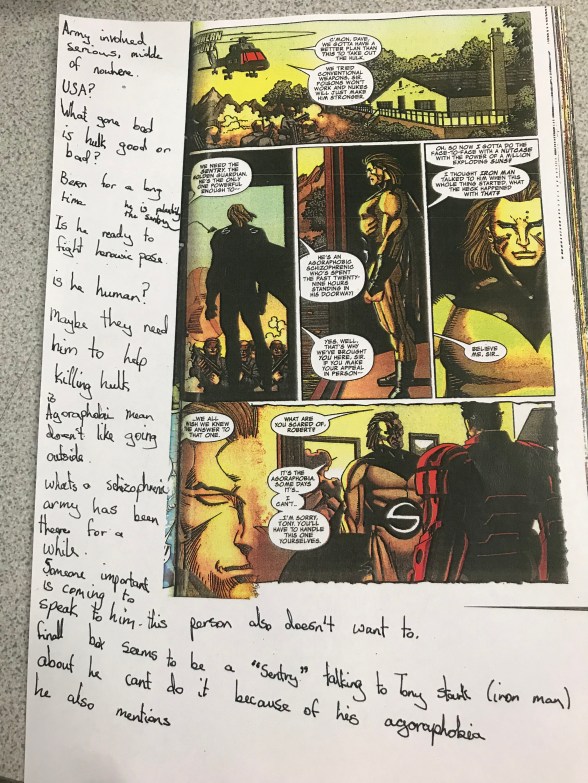 Army involved
serious, middle
of nowhere.
USA?
What gone bad
is hulk good or
bad?
Been for a long
time he is potentially
the sentry
Is he ready to
fight heroic pose.
is he human?
Maybe they need
him to help
killing hulk
is
Agoraphobic mean
doesn't like going
outside.
whats a schizophrenic
army has been
there for a
while.
Someone important
is coming to
speak to him. this person also doesn't want to.
final box seems to be a "Sentry" talking to Tony stark (iron man)
about he cant do it because of his agoraphobia
he also mentions
C'MON, DAVE,
WE GOTTA HAVE A
BETTER PLAN THAN
THIS TO TAKE OUT
THE HULK.
WE TRIED
CONVENTIONAL
WEAPONS, SIR.
POISONS WON'T
WORK AND NUKES
WILL JUST MAKE
HIM STRONGER.
WE NEED THE
SENTRY. THE
GOLDEN GUARDIAN.
HE'S THE ONLY
ONE POWERFUL
ENOUGH TO--
HE'S AN
AGORAPHOBIC
SCHIZOPHRENIC
WHO'S SPENT THE
PAST TWENTY-
NINE HOURS
STANDING IN
HIS DOORWAY!
YES, WELL,
THAT'S WHY
WE'VE BROUGHT
YOU HERE, SIR.
IF YOU MAKE
YOUR APPEAL
IN PERSON--
OH, SO NOW I GOTTA DO THE
FACE-TO-FACE WITH A NUTCASE
WITH THE POWER OF A MILLION
EXPLODING SUNS?
I THOUGHT IRON MAN
TALKED TO HIM WHEN THIS
WHOLE THING STARTED. WHAT
THE HECK HAPPENED
WITH THAT?
BELIEVE
ME, SIR...
...WE ALL
WISH WE KNEW
THE ANSWER TO
THAT ONE.
WHAT ARE
YOU SCARED OF,
ROBERT?
IT'S THE
AGORAPHOBIA.
SOME DAYS
IT'S...
I
CAN'T...
...I'M SORRY,
TONY. YOU'LL
HAVE TO HANDLE
THIS ONE
YOURSELVES.
S